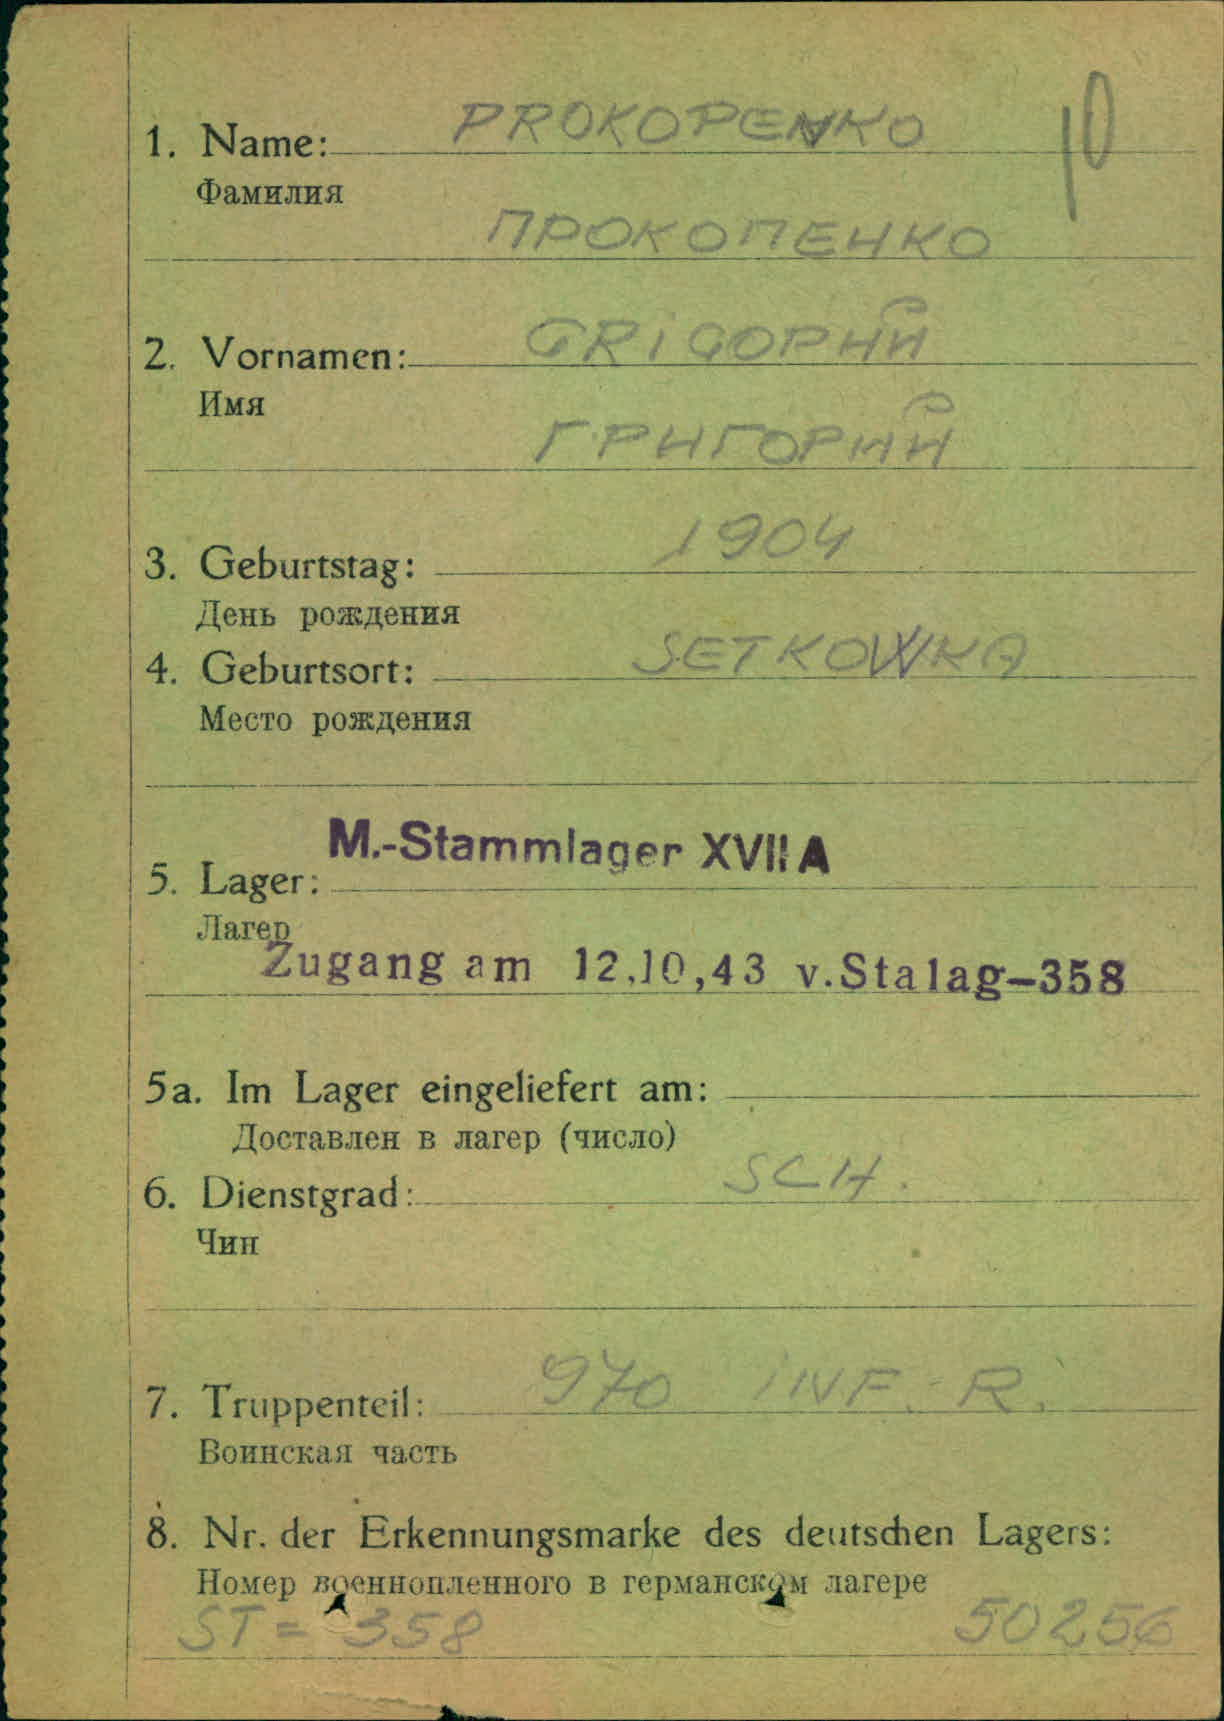 PROKOPENKO
10
1. Name:
Фамилия
ПРОКОПЕНКО
GRiGОРИЙ
2. Vornamen:
Имя
ГРИГОРИЙ
1904
3. Geburtstag:
День рождения
SETKOWKA
4. Geburtsort:
Место рождения
M.-Stammlager XVII A
5. Lager:
Лагер
Zugang am 12.10,43 v.Stalag-358
5a. Im Lager eingeliefert am:
Доставлен в лагер (число)
SCH.
6. Dienstgrad:
Чин
970 iNF. R.
7. Truppenteil:
Воинская часть
8. Nr. der Erkennungsmarke des deutschen Lagers:
Номер военнопленного в германском лагере
ST = 358 50256